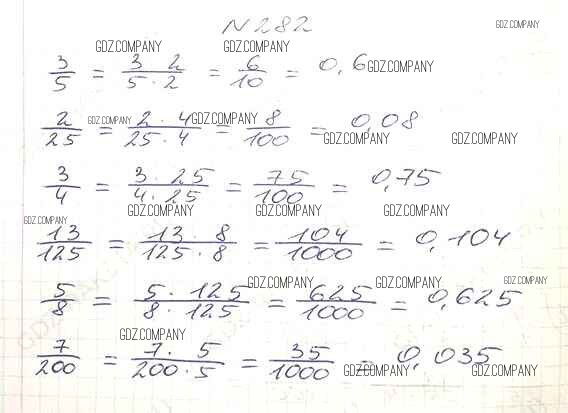 N 282
GDZ.COMPANY
GDZ.COMPANY GDZ.COMPANY
3/5 = 3 2/5 · 2 = 6/10 = 0,6 GDZ.COMPANY
2/25 = 2 · 4/25 · 4 = 8/100 = 0,08
GDZ.COMPANY GDZ.COMPANY
GDZ.COMPANY GDZ.COMPANY
3/4 = 3 · 25/4 · 25 = 75/100 = 0,75
GDZ.COMPANY GDZ.COMPANY GDZ.COMPANY GDZ.COMPANY
13/125 = 13 · 8/125 · 8 = 104/1000 = 0,104
5/8 = 5 · 125/8 · 125 = 625/1000 = 0,625
GDZ.COMPANY GDZ.COMPANY GDZ.COMPANY
GDZ.COMPANY
7/200 = 7 · 5/200 · 5 = 35/1000 = 0,035
GDZ.COMPANY GDZ.COMPANY